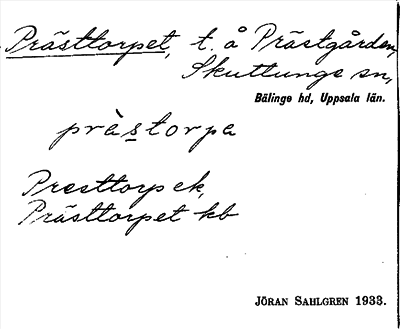 Prästtorpet, t. å Prästgården,
Skuttunge sn,
Bälinge hd, Uppsala län.
pràstorpa
Presttorp ek,
Prästtorpet kb
JÖRAN SAHLGREN 1933.